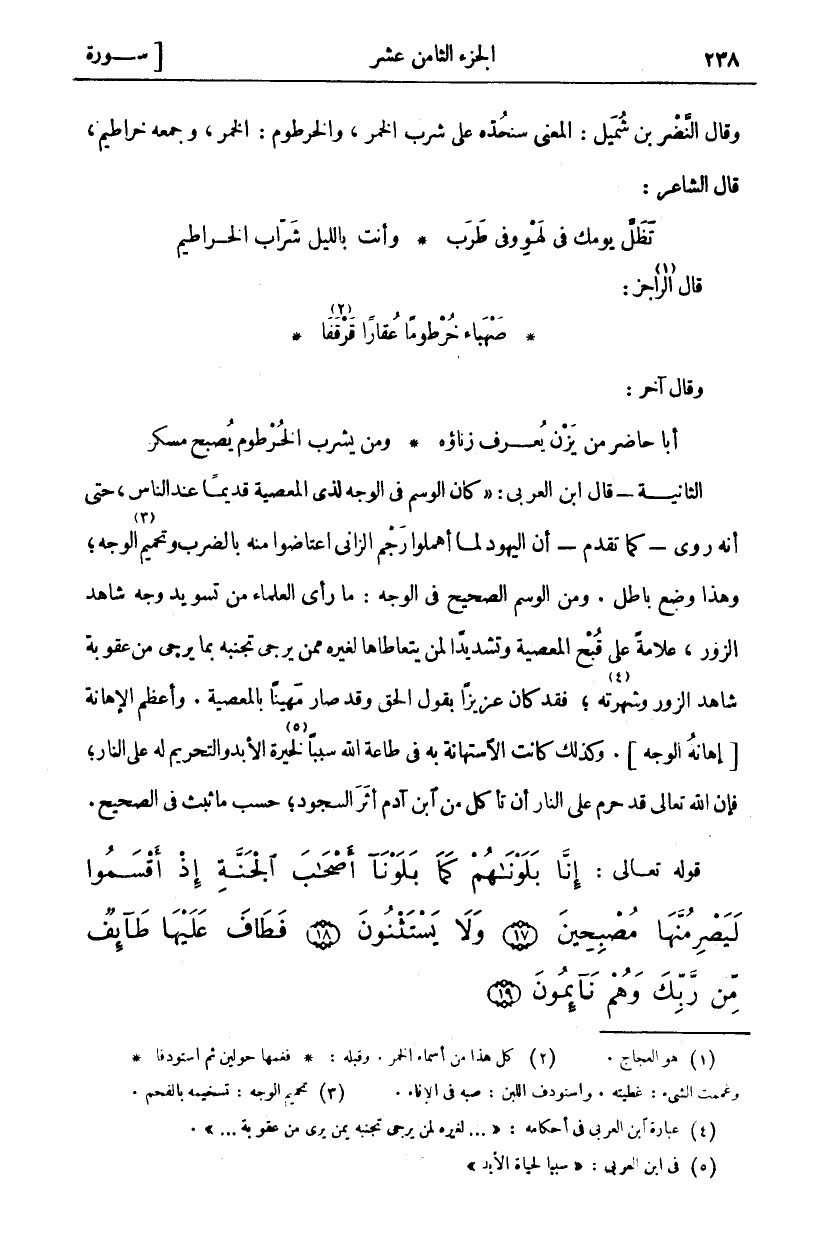 ٢٣٨ الجزء الثامن عشر [ سـورة
وقال النَّضْر بن شُمَيل : المعنى سنحُدّه على شرب الخمر ، والخرطوم : الخمر ، وجمعه خراطيم،
قال الشاعر :
تَظَلّ يومك فى لَهْوٍ وفى طَرَب * وأنت بالليل شَرّاب الخـراطيم
قال الراجز(١) :
* صَهْباء خُرْطومًا عُقارًا قَرْقَفَا(٢) *
وقال آخر :
أبا حاضر من يَزْنِ يُعـرف زناؤه * ومن يشرب الخُرْطوم يُصبح مسكر
الثانيـة – قال ابن العربى: «كان الوسم فى الوجه لذى المعصية قديمـًا عند الناس ،حتى
أنه روى – كما تقدم – أن اليهود لمـا أهملوا رَجْم الزانى اعتاضوا منه بالضرب وتحميم(٣) الوجه؛
وهذا وضع باطل . ومن الوسم الصحيح فى الوجه : ما رأى العلماء من تسويد وجه شاهد
الزور ، علامةً على قُبْح المعصية وتشديدًا لمن يتعاطاها لغيره ممن يرجى تجنبه بما يرجى من عقوبة
شاهد الزور وشهرته(٤) ؛ فقد كان عزيزًا بقول الحق وقد صار مَهينًا بالمعصية . وأعظم الإهانة
[ إهانةُ الوجه ] . وكذلك كانت الاستهانة به فى طاعة الله سببًا لخيرة(٥) الأبد والتحريم له على النار؛
فإن الله تعالى قد حرم على النار أن تأكل من آبن آدم أثَرَ السجود؛ حسب ما ثبت فى الصحيح.
قوله تعـالى : إِنَّا بَلَوْنَـٰهُمْ كَمَا بَلَوْنَآ أَصْحَـٰبَ ٱلْجَنَّةِ إِذْ أَقْسَـمُوا
لَيَصْرِمُنَّهَا مُصْبِحِينَ ﴿١٧﴾ وَلَا يَسْتَثْنُونَ ﴿١٨﴾ فَطَافَ عَلَيْهَا طَآئِفٌ
مِّن رَّبِّكَ وَهُمْ نَآئِمُونَ ﴿١٩﴾
(١) هو العجاج . (٢) كل هذا من أسماء الخمر . وقبله : * فغمها حولين ثم استودفا *
وغممت الشىء : غطيته . وأستودف اللبن : صبه فى الإناء . (٣) تحميم الوجه : تسخيمه بالفحم .
(٤) عبارة آبن العربى فى أحكامه : « ... لغيره لمن يرجى تجنبه بمن يرى من عقوبة ... » .
(٥) فى ابن العربى : « سببا لحياة الأبد »